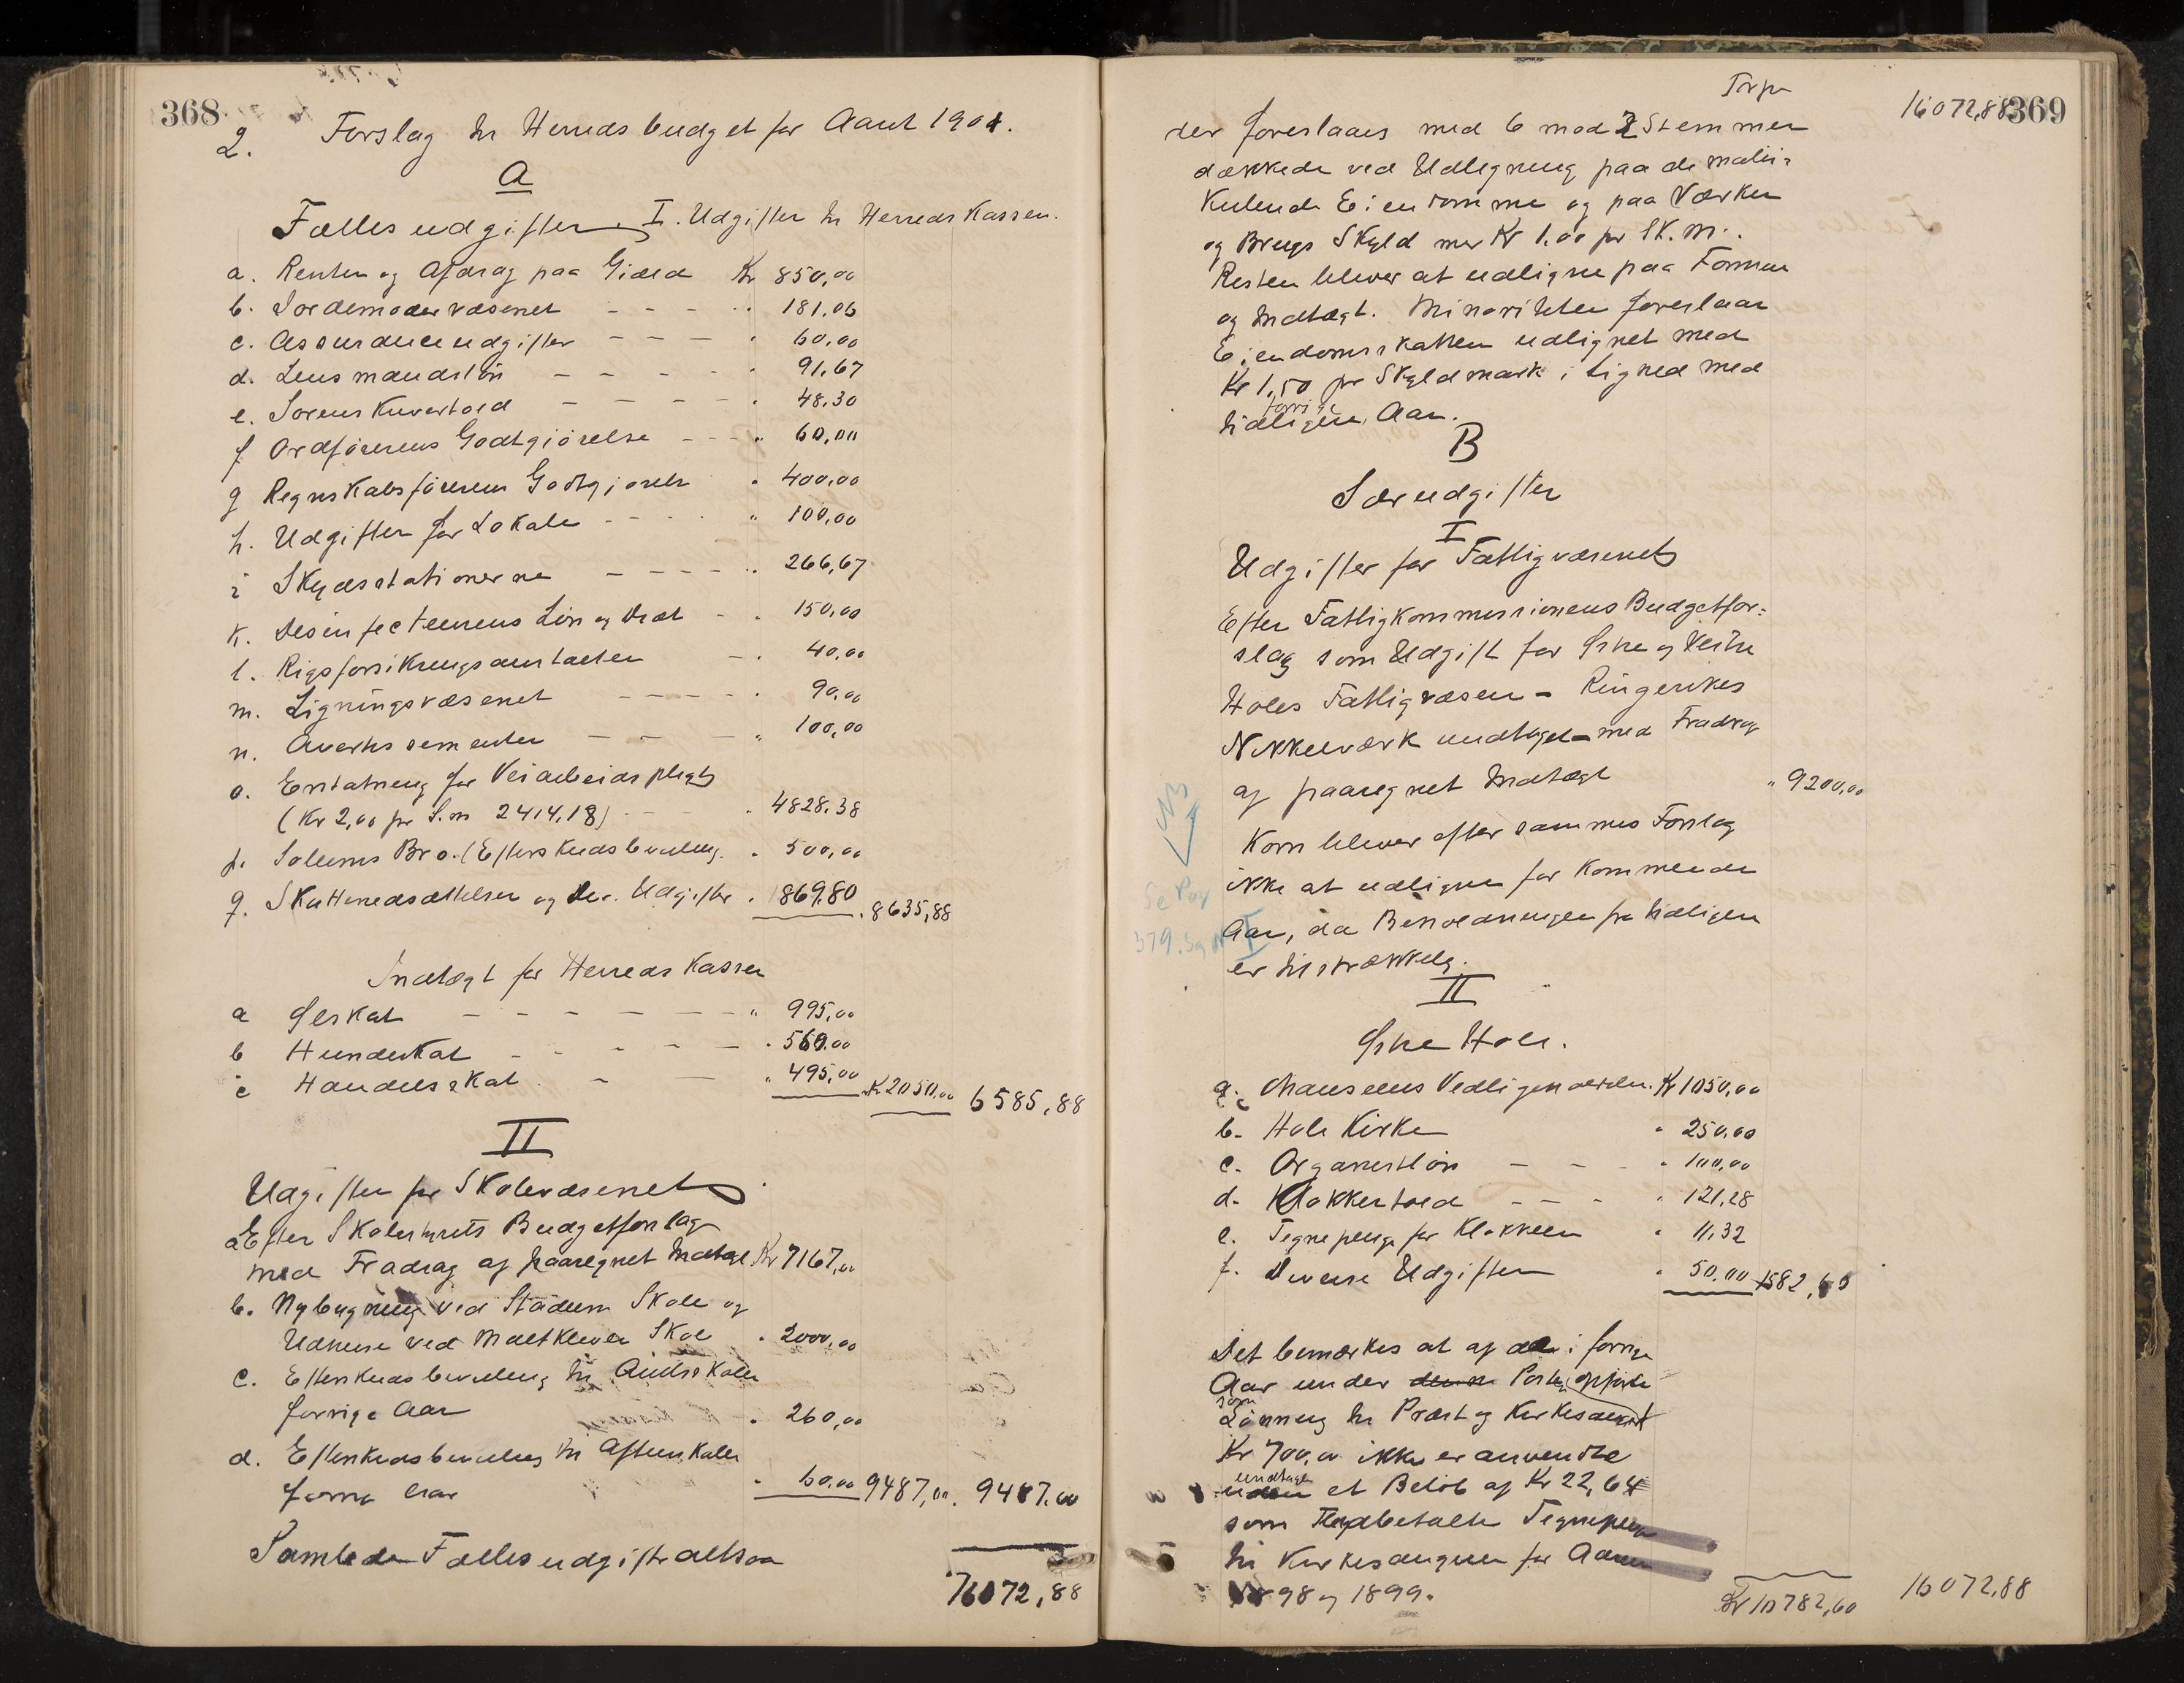 368
2. Forslag til Herredsbudget for Aaret 1901.
A
Fællesudgifter. I. Udgifter til Herredskassen.
a. Renter og Afdrag paa Gjæld Kr 850,00
b. Jordemodervæsenet - - - " 181.06
c. Assuranceudgifter - - - " 60,00
d. Lensmandsløn - - - - " 91,67
e. Sorenskrivertold - - - - " 48.30
f Ordførerens Godtgjörelse - - - " 60,00
g Regnskabsförerens Godtgjörelse " 400,00
h. Udgifter for Lokale - - - - " 100,00
i Skydsstationerne - - - - " 266,67
k. Desinfecteurens Lön og Diæt - " 150,00
l. Rigsforsikringsanstalten - " 40,00
m. Ligningsvæsenet - - - - " 90,00
n. Avertissementer - - - " 100,00
o. Erstatning for Veiarbeidspligt
(Kr 2,00 pr S.m 2414,18) - - " 4828.38
p. Solums Bro. (Efterskudsbevilling. " 500,00
q. Skattenedsættelser og Div. Udgifter " 869,80 " 8635,88
Indtægt for Herredskassen
a Ölskat - - - - - - - " 995,00
b Hundeskat - - - - - " 560.00
c Handelsskat - - " 495,00 Kr 2050,00 6585,88
II
Udgifter for Skolevæsenet
a Efter Skolestyrets Budgetforslag
med Fradrag af paaregnet Indtægt Kr 7167,00
b. Nybygning ved Stadum Skole og
Udhuse ved Maltklever Skole " 2000,00
c. Efterskudsbevilling til Amtsskolen
forrige Aar " 260,00
d. Efterskudsbevilling til Aftenskolen
forrige Aar " 60.00 9487,00. 9487.00
Samlede Fællesudgifter altsaa
16072,88
369
Trsp 16072,88
der foreslaaes med 6 mod 2 Stemmer
dækkede ved Udligning paa de matri-
kulerede Eiendomme og paa Værker
og Brugs Skyld med Kr 1.00 pr Sk.m..
Resten bliver at udligne paa Formue
og Indtægt. Minoriteten foreslaar
Eiendomsskatten udlignet med
Kr 1,50 pr Skyldmark i Lighed med
forrige
tidligere Aar.
B
Særudgifter
I
Udgifter for Fattigvæsenet
Efter Fattigkommissionens Budgetfor-
slag som Udgift for Östre og Vestre
Holes Fattigvæsen - Ringerikes
Nikkelværk undtaget - med Fradrag
af paaregnet Indtægt " 9200,00
NB
Korn bliver efter sammes Forslag
ikke at udligne for kommende
Se Pag
379. Sag
Aar, da Beholdningen fra tidligere
er tilstrækkelig.
II
Östre Hole.
a. Chauseens Vedligeholdelse. Kr 1050,00
b. Hole Kirke " 250,00
c. Organistlön - - " 100,00
d. Klokkertold - - - " 121,28
e. Tegnepenge for Klokkeren " 11,32
f. Diverse Udgifter " 50,00 1582,60
Det bemærkes at af de i forrige
Aar under denne Post opförte
som
Lönning til Præst og Kirkesanger
Kr 700,00 ikke er anvendte
undtagen
uden et Belöb af Kr 22,64
som udbetalte Tegnepenge
til Kirkesangeren for Aarene
1898 og 1899.
Kr 10782,60 16072,88